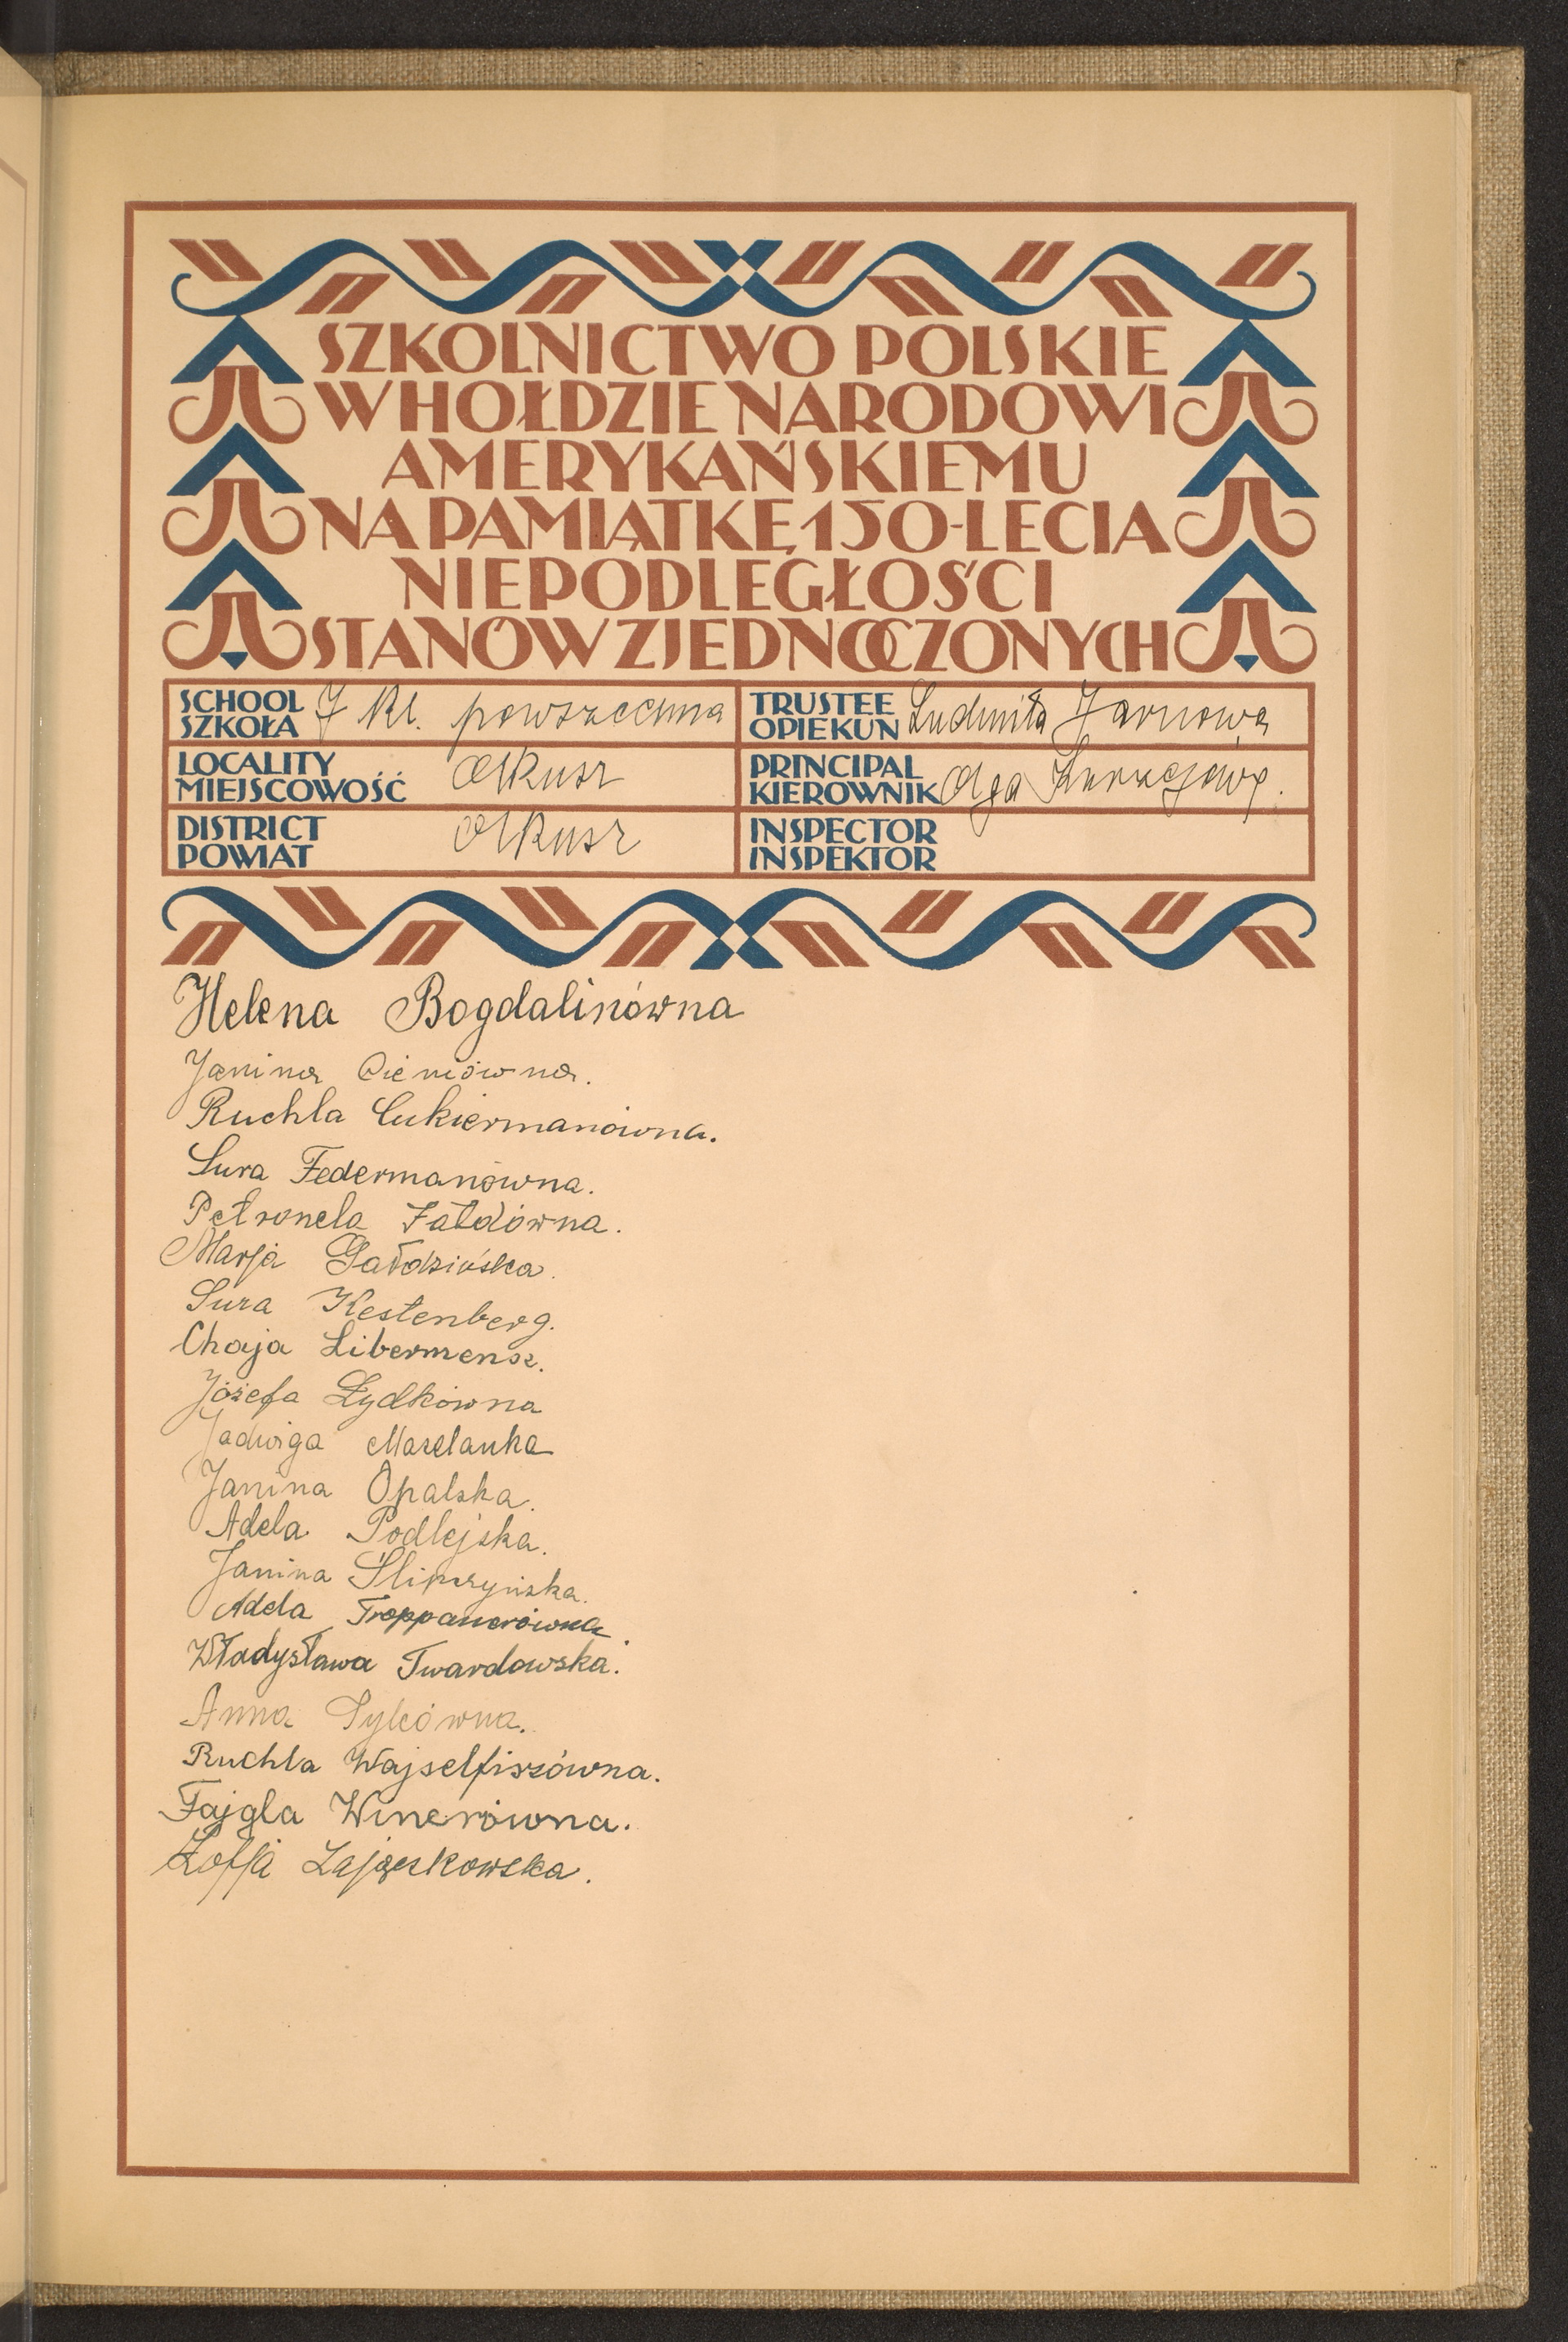 SZKOLNICTWO POLSKIE
W HOŁDZIE NARODOWI
AMERYKAŃSKIEMU
NA PAMIĄTKĘ 150-LECIA
NIEPODLEGŁOŚCI
STANÓW ZJEDNOCZONYCH
SCHOOL SZKOŁA 7 kl. powszechna
TRUSTEE OPIEKUN Ludmiła Jarnowa
LOCALITY MIEJSCOWOŚĆ Olkusz
PRINCIPAL KIEROWNIK Olga
DISTRICT POWIAT Olkusz
INSPECTOR INSPEKTOR
Helena Bogdalinówna
Janina Cieniówna.
Ruchla Cukiermanówna.
Sura Federmanówna.
Petronela Fałdówna.
Marja Gałdzińska.
Sura Kestenberg.
Chaja Libermensz.
Józefa Łydkówna
Jadwiga Maselanka
Janina Opalska.
Adela Podlejska.
Janina Ślipczyńska.
Adela Troppauerówna.
Władysława Twardowska.
Anna Sylcówna.
Ruchla Wajselfiszówna.
Fajgla Winerówna.
Zofja Zajączkowska.